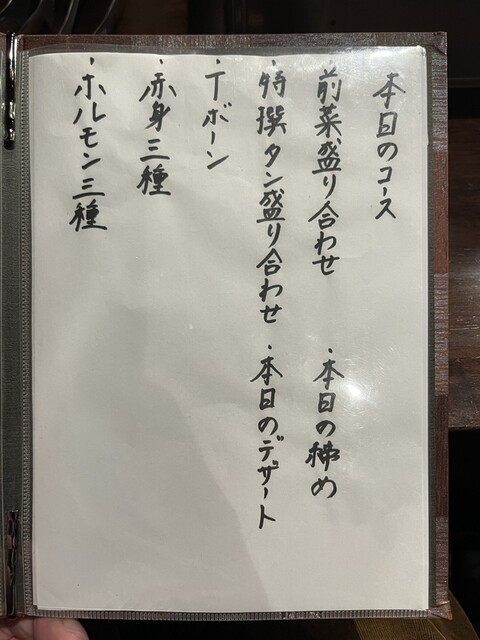 本日のコース
・前菜盛り合わせ
・特撰タン盛り合わせ
・Tボーン
・赤身三種
・ホルモン三種
・本日の締め
・本日のデザート